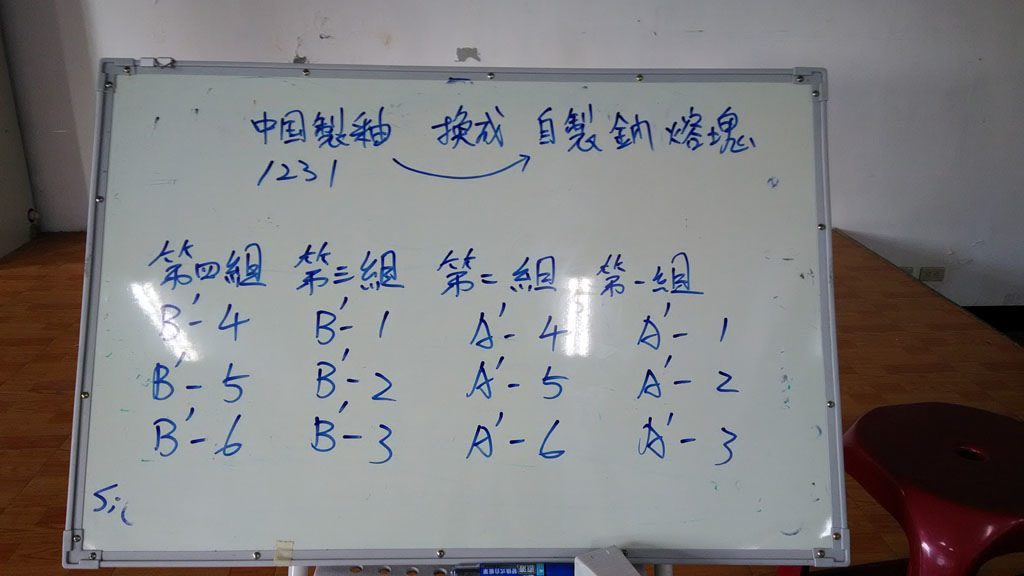 中国製釉 換成 自製鈉熔塊
1231
第四組 第三組 第二組 第一組
B'-4 B'-1 A'-4 A'-1
B'-5 B'-2 A'-5 A'-2
B'-6 B'-3 A'-6 A'-3